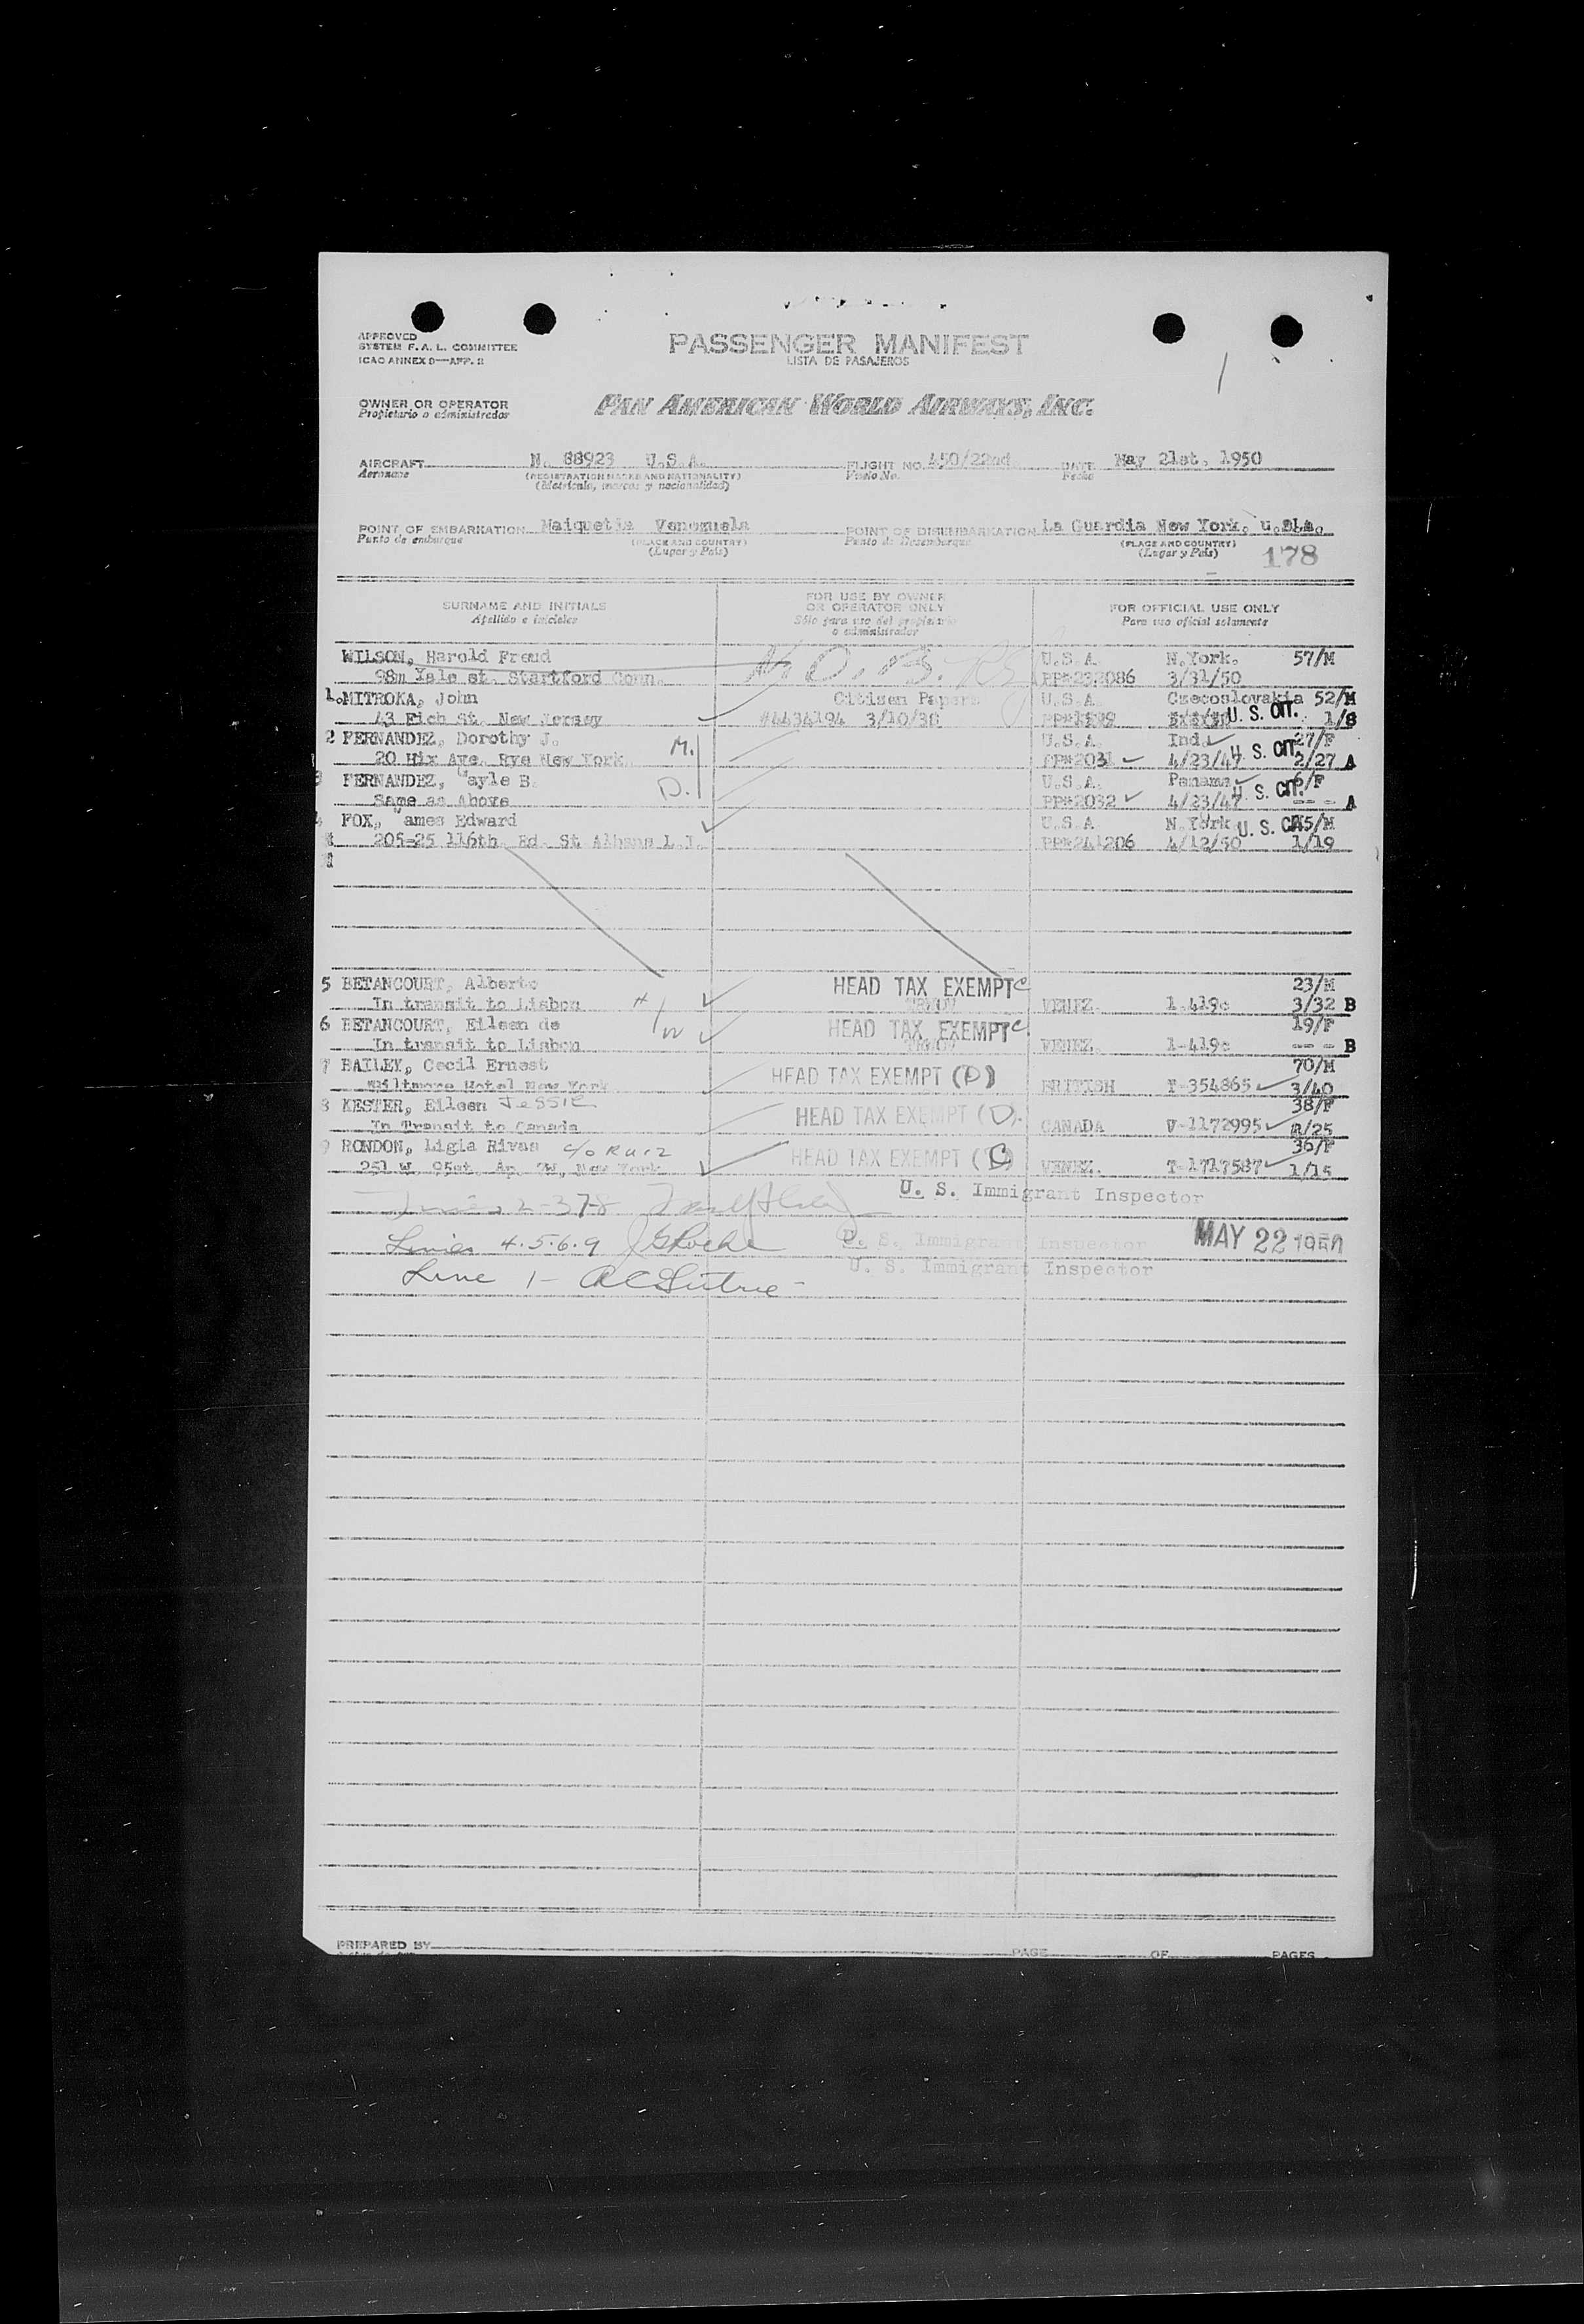 APPROVED
SYSTEM F. A. L. COMMITTEE
ICAO ANNEX 9—APP. 2
PASSENGER MANIFEST
LISTA DE PASAJEROS
OWNER OR OPERATOR
Propietario o administrador
PAN AMERICAN WORLD AIRWAYS, INC.
AIRCRAFT N. 88923 U.S.A. FLIGHT NO. 450/22nd DATE May 21st, 1950
Aeronave (REGISTRATION MARKS AND NATIONALITY) Vuelo No. Fecha
(Matrícula, marcas y nacionalidad)
POINT OF EMBARKATION Maiquetia Venezuela POINT OF DISEMBARKATION La Guardia New York, u.s.a.
Punto de embarque (PLACE AND COUNTRY) Punto de Desembarque (PLACE AND COUNTRY)
(Lugar y País) (Lugar y País) 178
SURNAME AND INITIALS FOR USE BY OWNER OR OPERATOR ONLY FOR OFFICIAL USE ONLY
Apellido e iniciales Sólo para uso del propietario o administrador Para uso oficial solamente
WILSON, Harold Freud N.O.B. U.S.A. N.York. 57/M
98m Yale st. Startford Conn. PP#232086 3/31/50
1. MITROKA, John Citizen Papers U.S.A. Czecoslovakia 52/M
43 Rich St. New Jersey #4434194 3/10/38 U. S. CIT. 1/8
2 FERNANDEZ, Dorothy J. M. U.S.A. Ind. 27/F
20 Hix Ave. Rye New York. PP#2031 4/23/47 U. S. CIT. 2/27 A
3 FERNANDEZ, Gayle B. D. U.S.A. Panama 6/F
Same as Above PP#2032 4/23/47 U. S. CIT. -- - A
4 FOX, James Edward U.S.A. N.York U. S. CIT. /M
205-25 116th. Rd. St Albans L.I. PP#241206 4/12/50 1/19
5 BETANCOURT, Alberto HEAD TAX EXEMPT C 23/M
In transit to Lisbon H VENEZ. 1-419c 3/32 B
6 BETANCOURT, Eileen de HEAD TAX EXEMPT C 19/F
In transit to Lisbon W VENEZ. 1-419c -- - B
7 BAILEY, Cecil Ernest HEAD TAX EXEMPT (D) 70/M
Biltmore Hotel New York BRITISH T-354865 3/40
8 KESTER, Eileen Jessie HEAD TAX EXEMPT (D) 38/F
In Transit to Canada CANADA V-1172995 /25
9 RONDON, Ligia Rivas c/o Ruiz HEAD TAX EXEMPT (C) 36/F
251 W. 95st. Ap. 7W, New York VENEZ. T-1717587 1/15
Lines 2-3-7-8 U. S. Immigrant Inspector
Lines 4.5.6.9 J G Roche U. S. Immigrant Inspector MAY 22 1950
Line 1- U. S. Immigrant Inspector
PREPARED BY PAGE OF PAGES